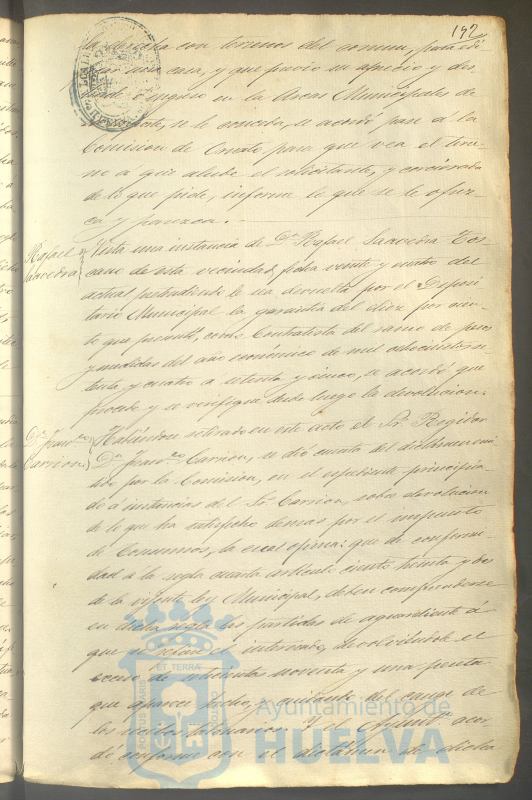 192
con terrenos del comun, para edi
ficar una casa, y que previo su aprecio y des
linde e ingreso en las Arcas Municipales de
su importe, se le conceda, se acordó pase a la
Comision de Ornato para que vea el terre
no a que alude el solicitante, y cerciorada
de lo que pide, informe lo que se le ofrez
ca y parezca.
Rafael
Saavedra
Vista una instancia de Dn. Rafael Saavedra Tos
cano de esta vecindad, fecha veinte y cuatro del
actual pretendiendo le sea devuelta por el Deposi
tario Municipal la garantia del diez por cien
to que presentó, como Contratista del ramo de pesos
y medidas del año economico de mil ochocientos se
tenta y cuatro a setenta y cinco, se acordó que
procede y se verifique desde luego la devolucion.
Dn. Franco.
Carrion
Habiendose retirado en este acto el Sr. Regidor
Dn. Franco. Carrion, se dió cuenta del dictamen emi
tido por la Comision, en el espediente principia
do á instancias del Sr. Carrion, sobre devolucion
de lo que ha satisfecho demas por el impuesto
de Consumos, la cual opina: que de conformi
dad á la regla cuarta articulo ciento treinta y dos
de la vigente ley Municipal, deben comprenderse
en dicha regla las partidas de aguardiente á
que se refiere el interesado, devolviendole el
exceso de setecientas noventa y una pesetas
que aparece hecho, y quitando del cargo de
los recibos talonarios. Y el Ayuntto. acor
dó conforme con el dictamen de dicha
PORTUS MARIS
ET TERRÆ
CUSTODIA
Ayuntamiento de
HUELVA